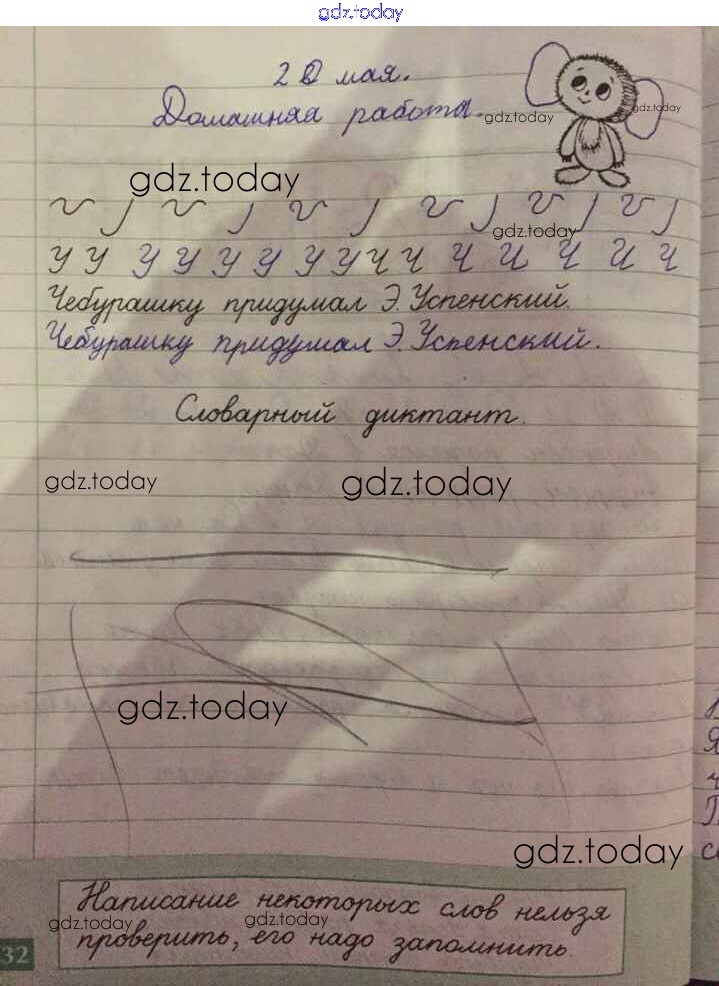 gdz.today
20 мая.
Домашняя работа.
gdz.today
gdz.today
gdz.today
gdz.today
У У У У У У У У Ч Ч Ч Ч Ч Ч Ч
Чебурашку придумал Э. Успенский.
Чебурашку придумал Э. Успенский.
Словарный диктант.
gdz.today
gdz.today
gdz.today
gdz.today
Написание некоторых слов нельзя
gdz.today
gdz.today
проверить, его надо запомнить.
32